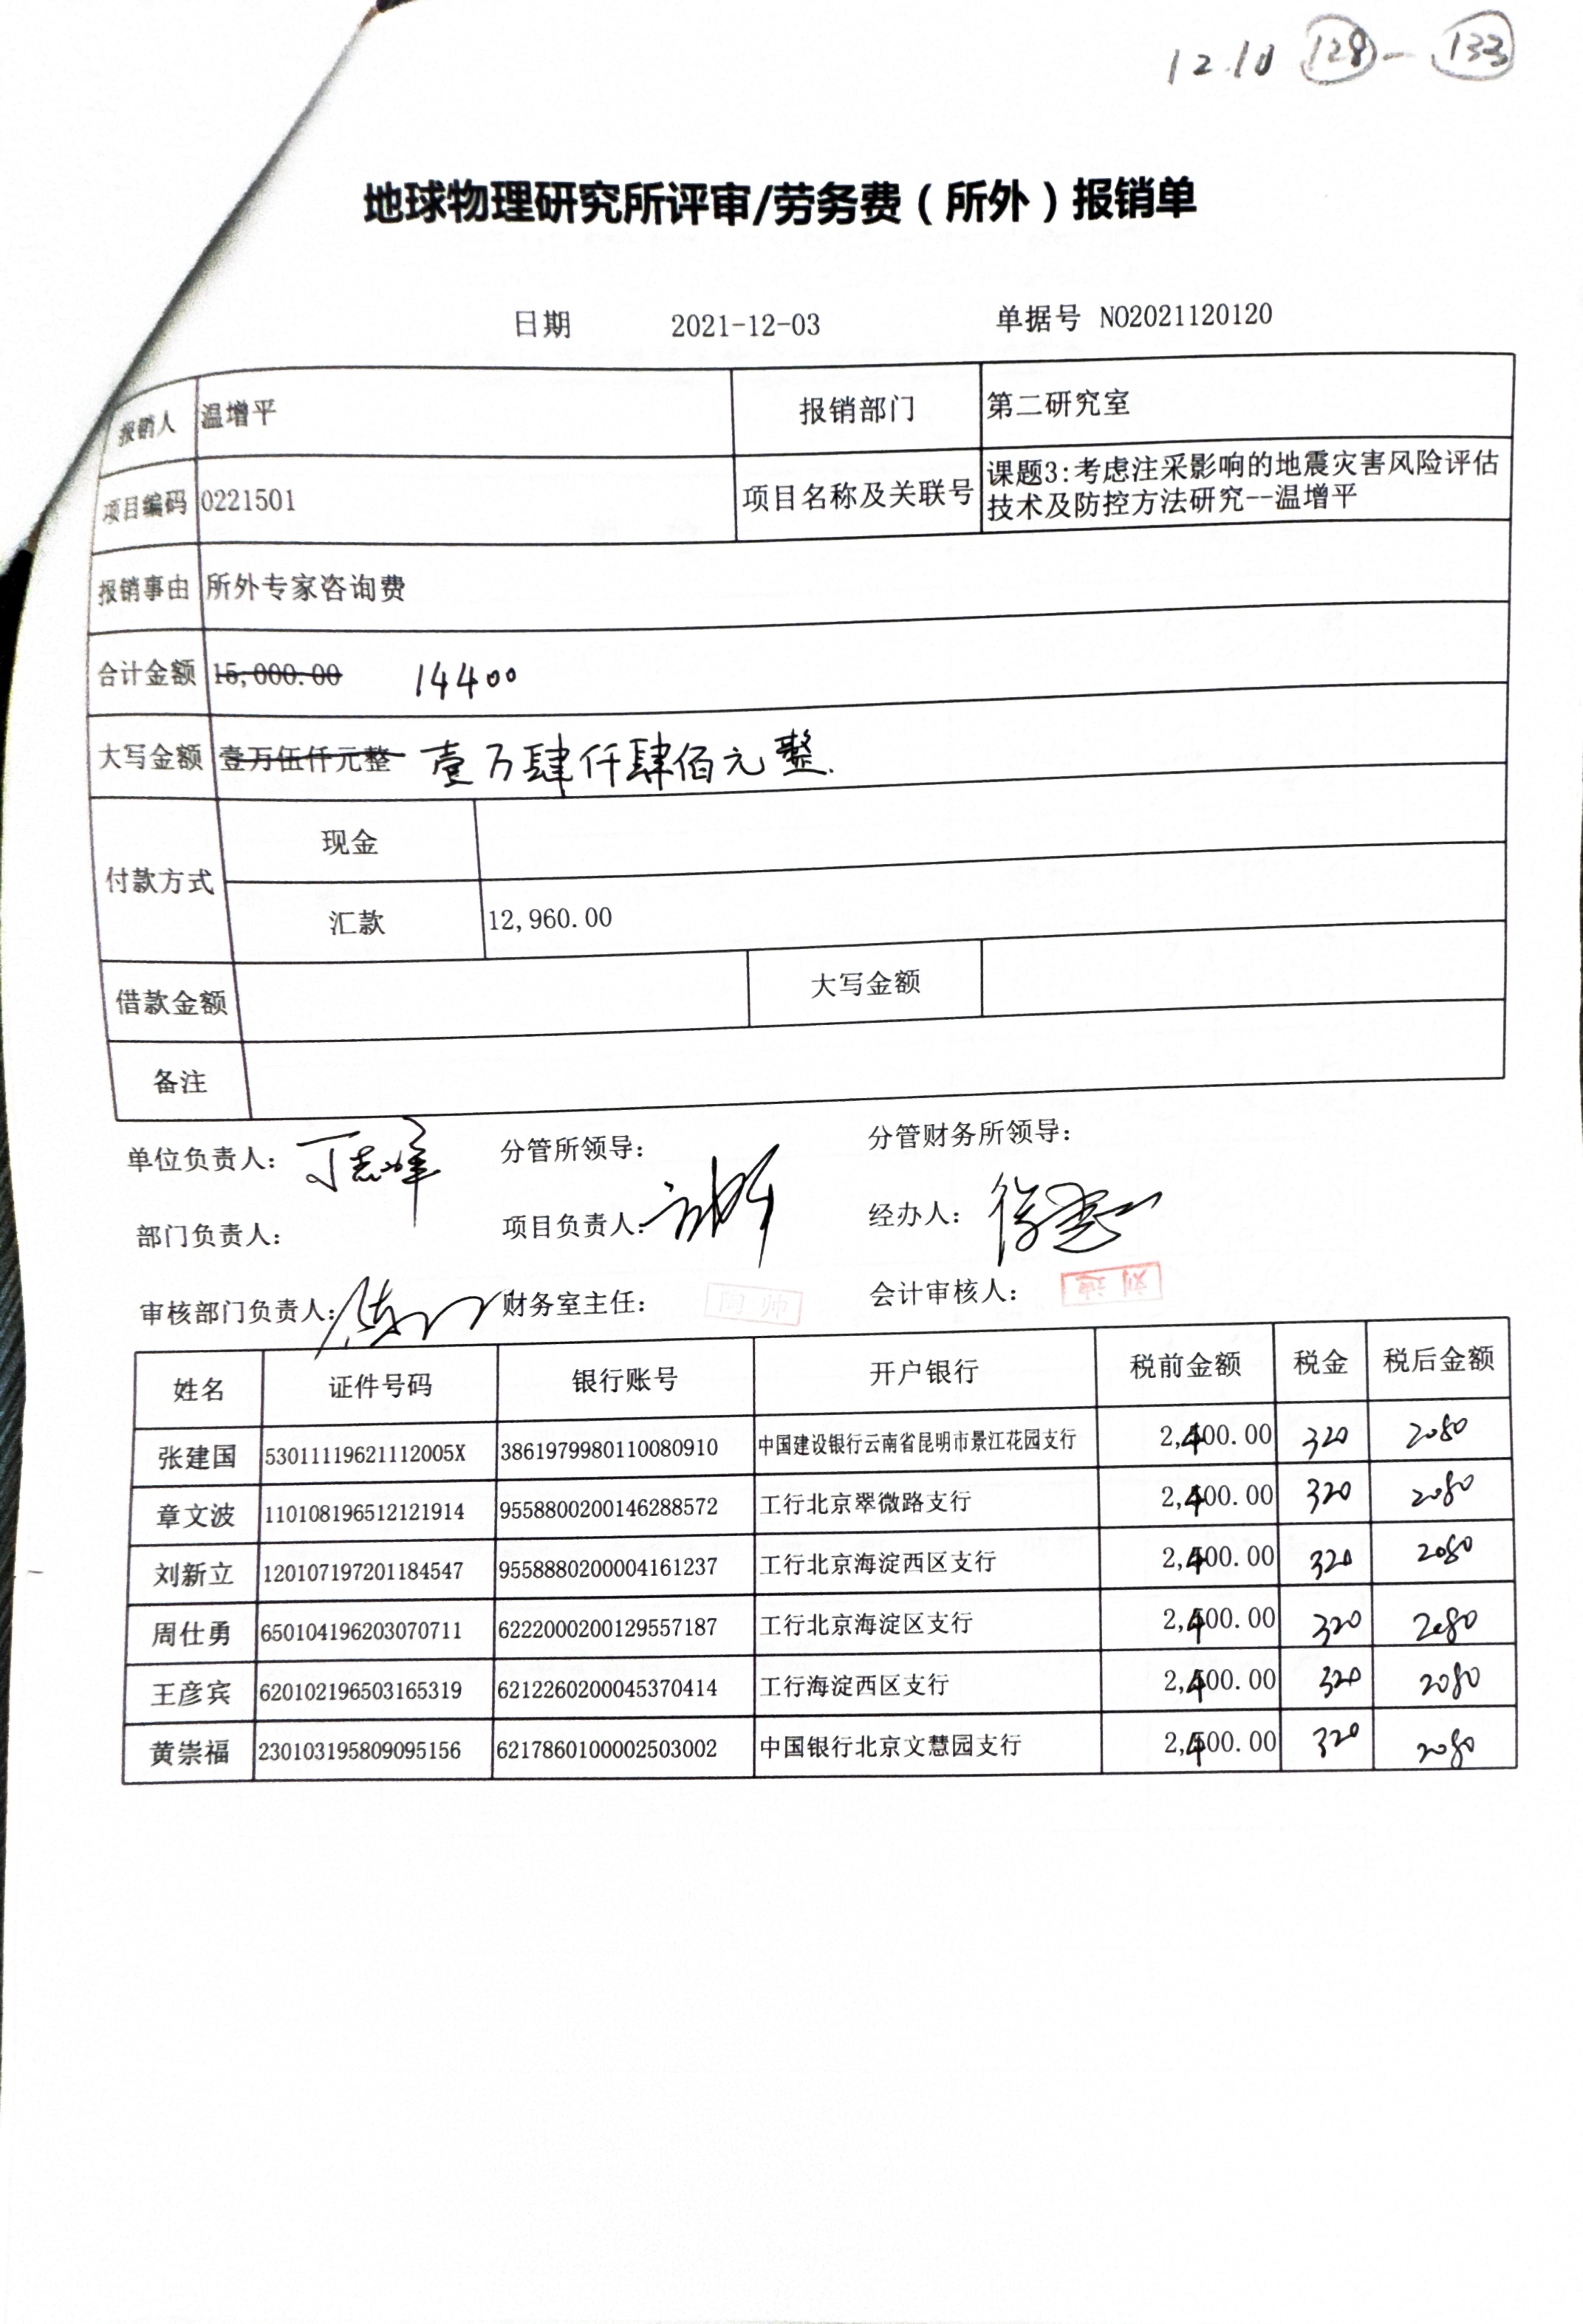 12.10 128 - 133
地球物理研究所评审/劳务费（所外）报销单
日期 2021-12-03 单据号 NO2021120120
报销人 温增平 报销部门 第二研究室
项目编码 0221501 项目名称及关联号 课题3:考虑注采影响的地震灾害风险评估
技术及防控方法研究--温增平
报销事由 所外专家咨询费
合计金额 15,000.00 14400
大写金额 壹万伍仟元整 壹万肆仟肆佰元整
付款方式 现金
汇款 12,960.00
借款金额 大写金额
备注
单位负责人: 丁志峰 分管所领导: 分管财务所领导:
部门负责人: 项目负责人: 经办人:
审核部门负责人: 财务室主任: 会计审核人:
姓名 证件号码 银行账号 开户银行 税前金额 税金 税后金额
张建国 53011119621112005X 3861979980110080910 中国建设银行云南省昆明市景江花园支行 2,400.00 320 2080
章文波 110108196512121914 9558800200146288572 工行北京翠微路支行 2,400.00 320 2080
刘新立 120107197201184547 9558880200004161237 工行北京海淀西区支行 2,400.00 320 2080
周仕勇 650104196203070711 6222000200129557187 工行北京海淀区支行 2,400.00 320 2080
王彦宾 620102196503165319 6212260200045370414 工行海淀西区支行 2,400.00 320 2080
黄崇福 230103195809095156 6217860100002503002 中国银行北京文慧园支行 2,400.00 320 2080